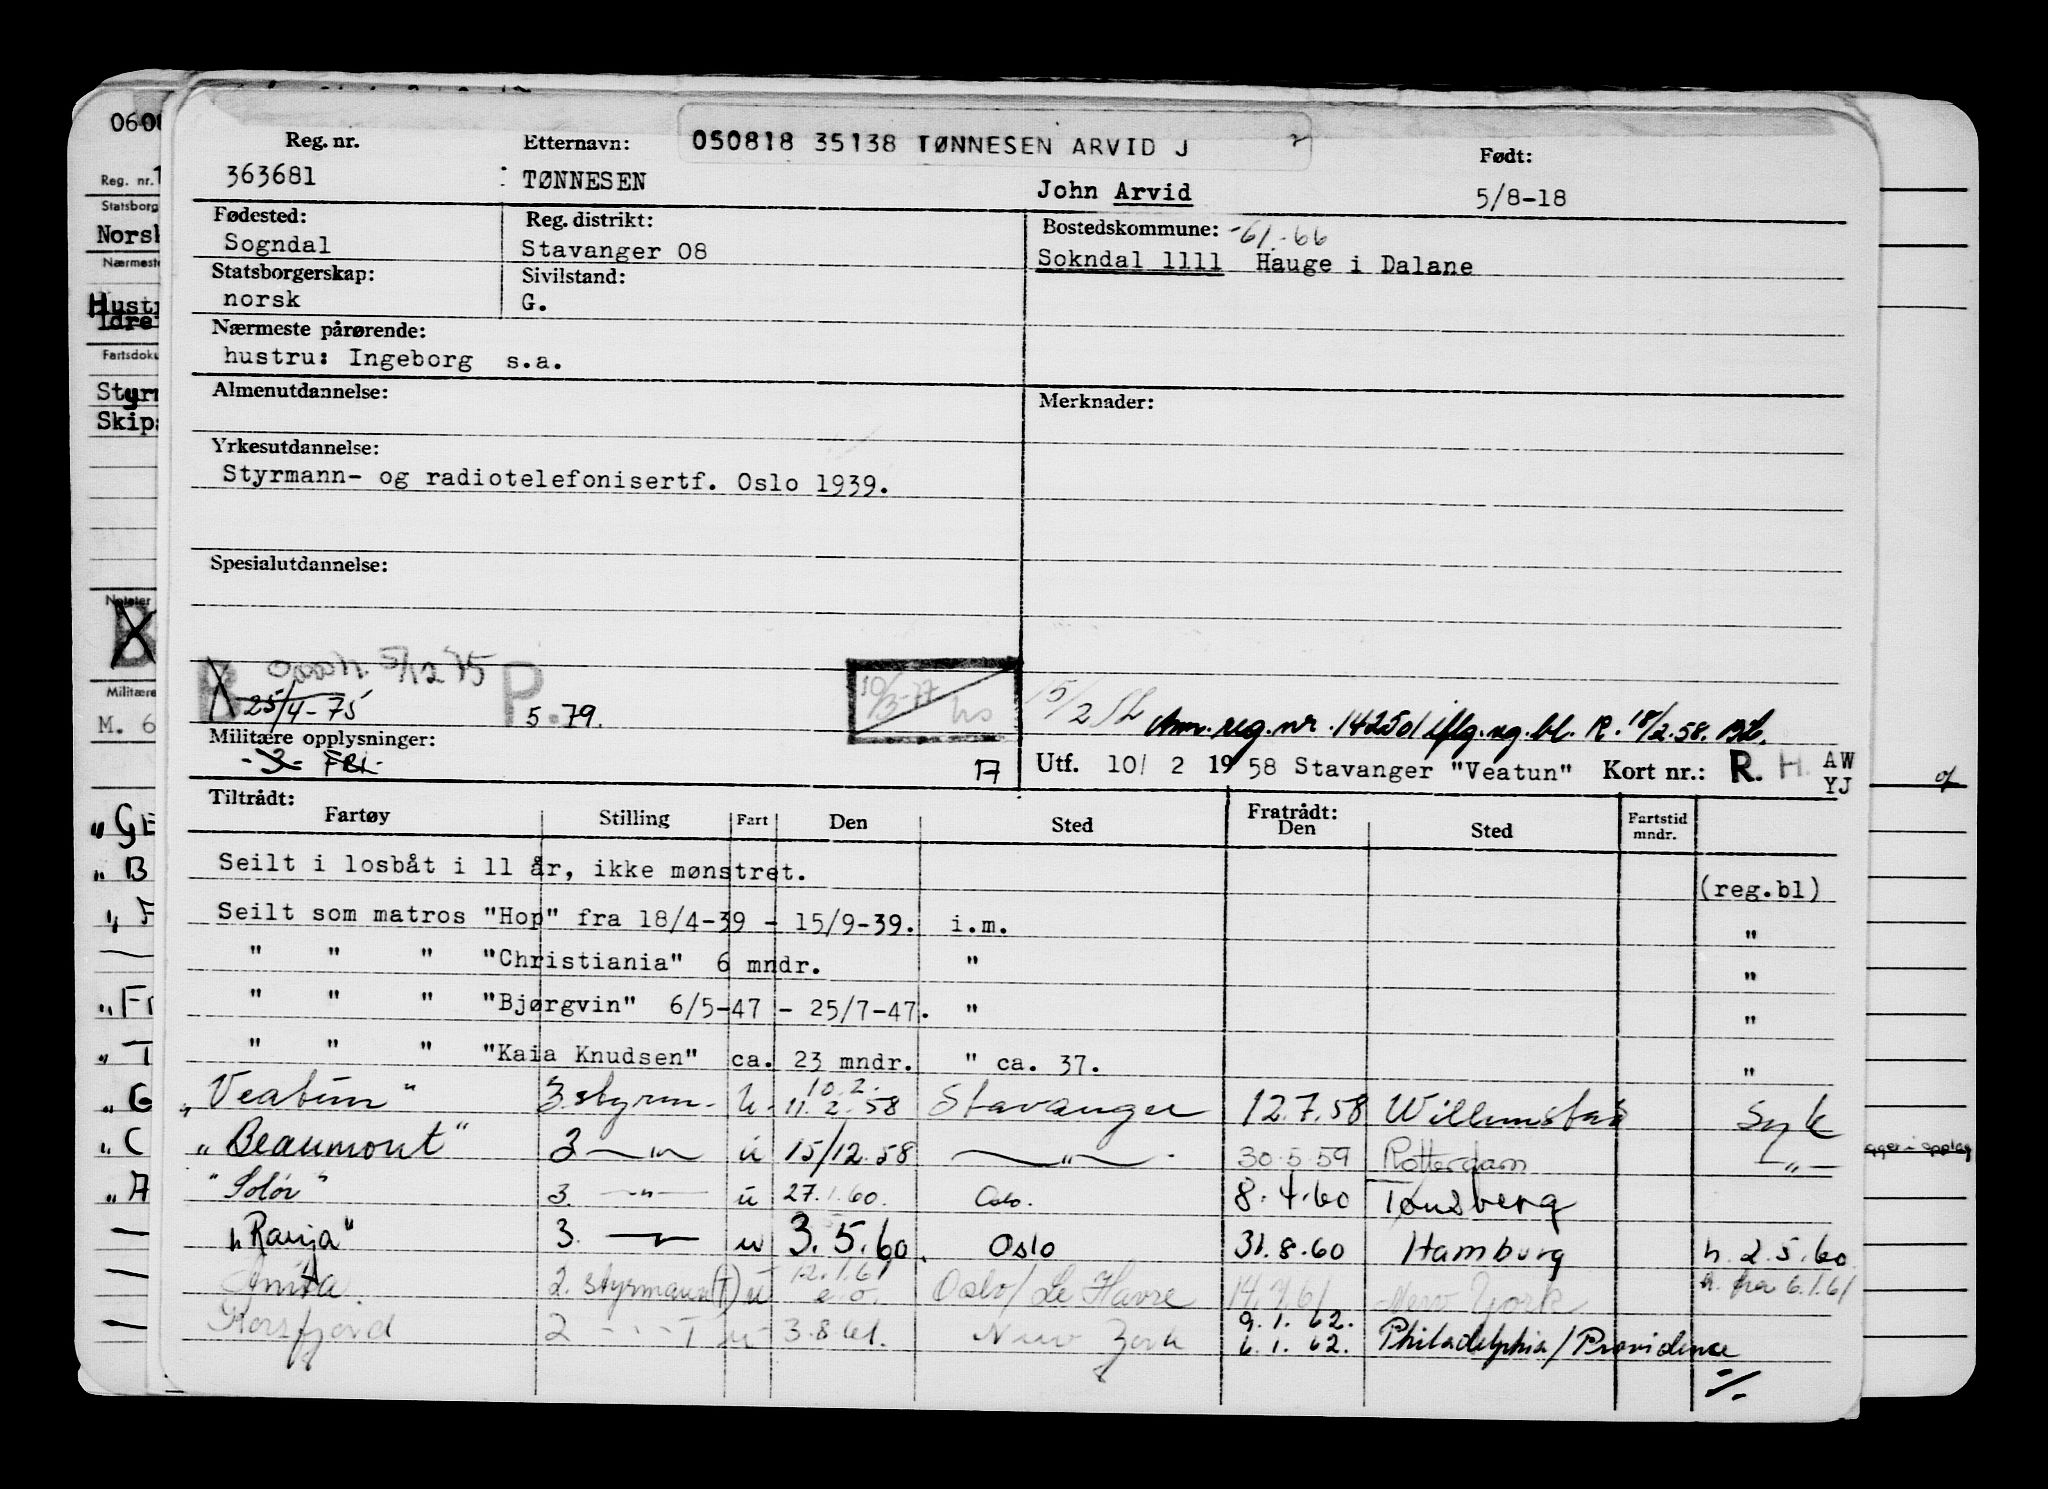 050818 35138 TØNNESEN ARVID J
Reg. nr. Etternavn: Født:
363681 TØNNESEN John Arvid 5/8-18
Fødested: Reg. distrikt: Bostedskommune: -61-66
Sogndal Stavanger 08 Sokndal 1111 Hauge i Dalane
Statsborgerskap: Sivilstand:
norsk G.
Nærmeste pårørende:
hustru: Ingeborg s.a.
Almenutdannelse: Merknader:
Yrkesutdannelse:
Styrmann- og radiotelefonisertf. Oslo 1939.
Spesialutdannelse:
B 5/12 75 P. 10/3-77
25/4-75 5.79. 15/2 Anm. reg. nr. 142501 iflg. reg. bl. R. 18/2.58.
Militære opplysninger:
-3- FBI- 17 Utf. 10/ 2 1958 Stavanger "Veatun" Kort nr.: R. H. AW YJ
Tiltrådt: Fratrådt:
Fartøy Stilling Fart Den Sted Den Sted Fartstid mndr.
Seilt i losbåt i 11 år, ikke mønstret. (reg.bl)
Seilt som matros "Hop" fra 18/4-39 - 15/9-39. i.m. "
" " " "Christiania" 6 mndr. " "
" " " "Bjørgvin" 6/5-47 - 25/7-47. " "
" " " "Kaia Knudsen" ca. 23 mndr. " ca. 37. "
10.2.
"Veatun" 3. styrm. u. 11.2.58 Stavanger 12.7.58 Willemstad Syk
"Beaumont" 3 —"— u 15/12.58 —"— 30.5.59 Rotterdam —"—
"Solør" 3. —"— u 27.1.60. Oslo. 8.4.60 Tønsberg
"Ranja" 3. —"— u 3.5.60. Oslo 31.8.60 Hamburg h. 2.5.60
Anita 2. styrmann (T) u 12.1.61 e.o. Oslo/Le Havre 14.7.61 New York h. fra 6.1.61
Korsfjord 2 —"— T u 3.8.61. New York 9.1.62. 6.1.62. Philadelphia/Providence
./.